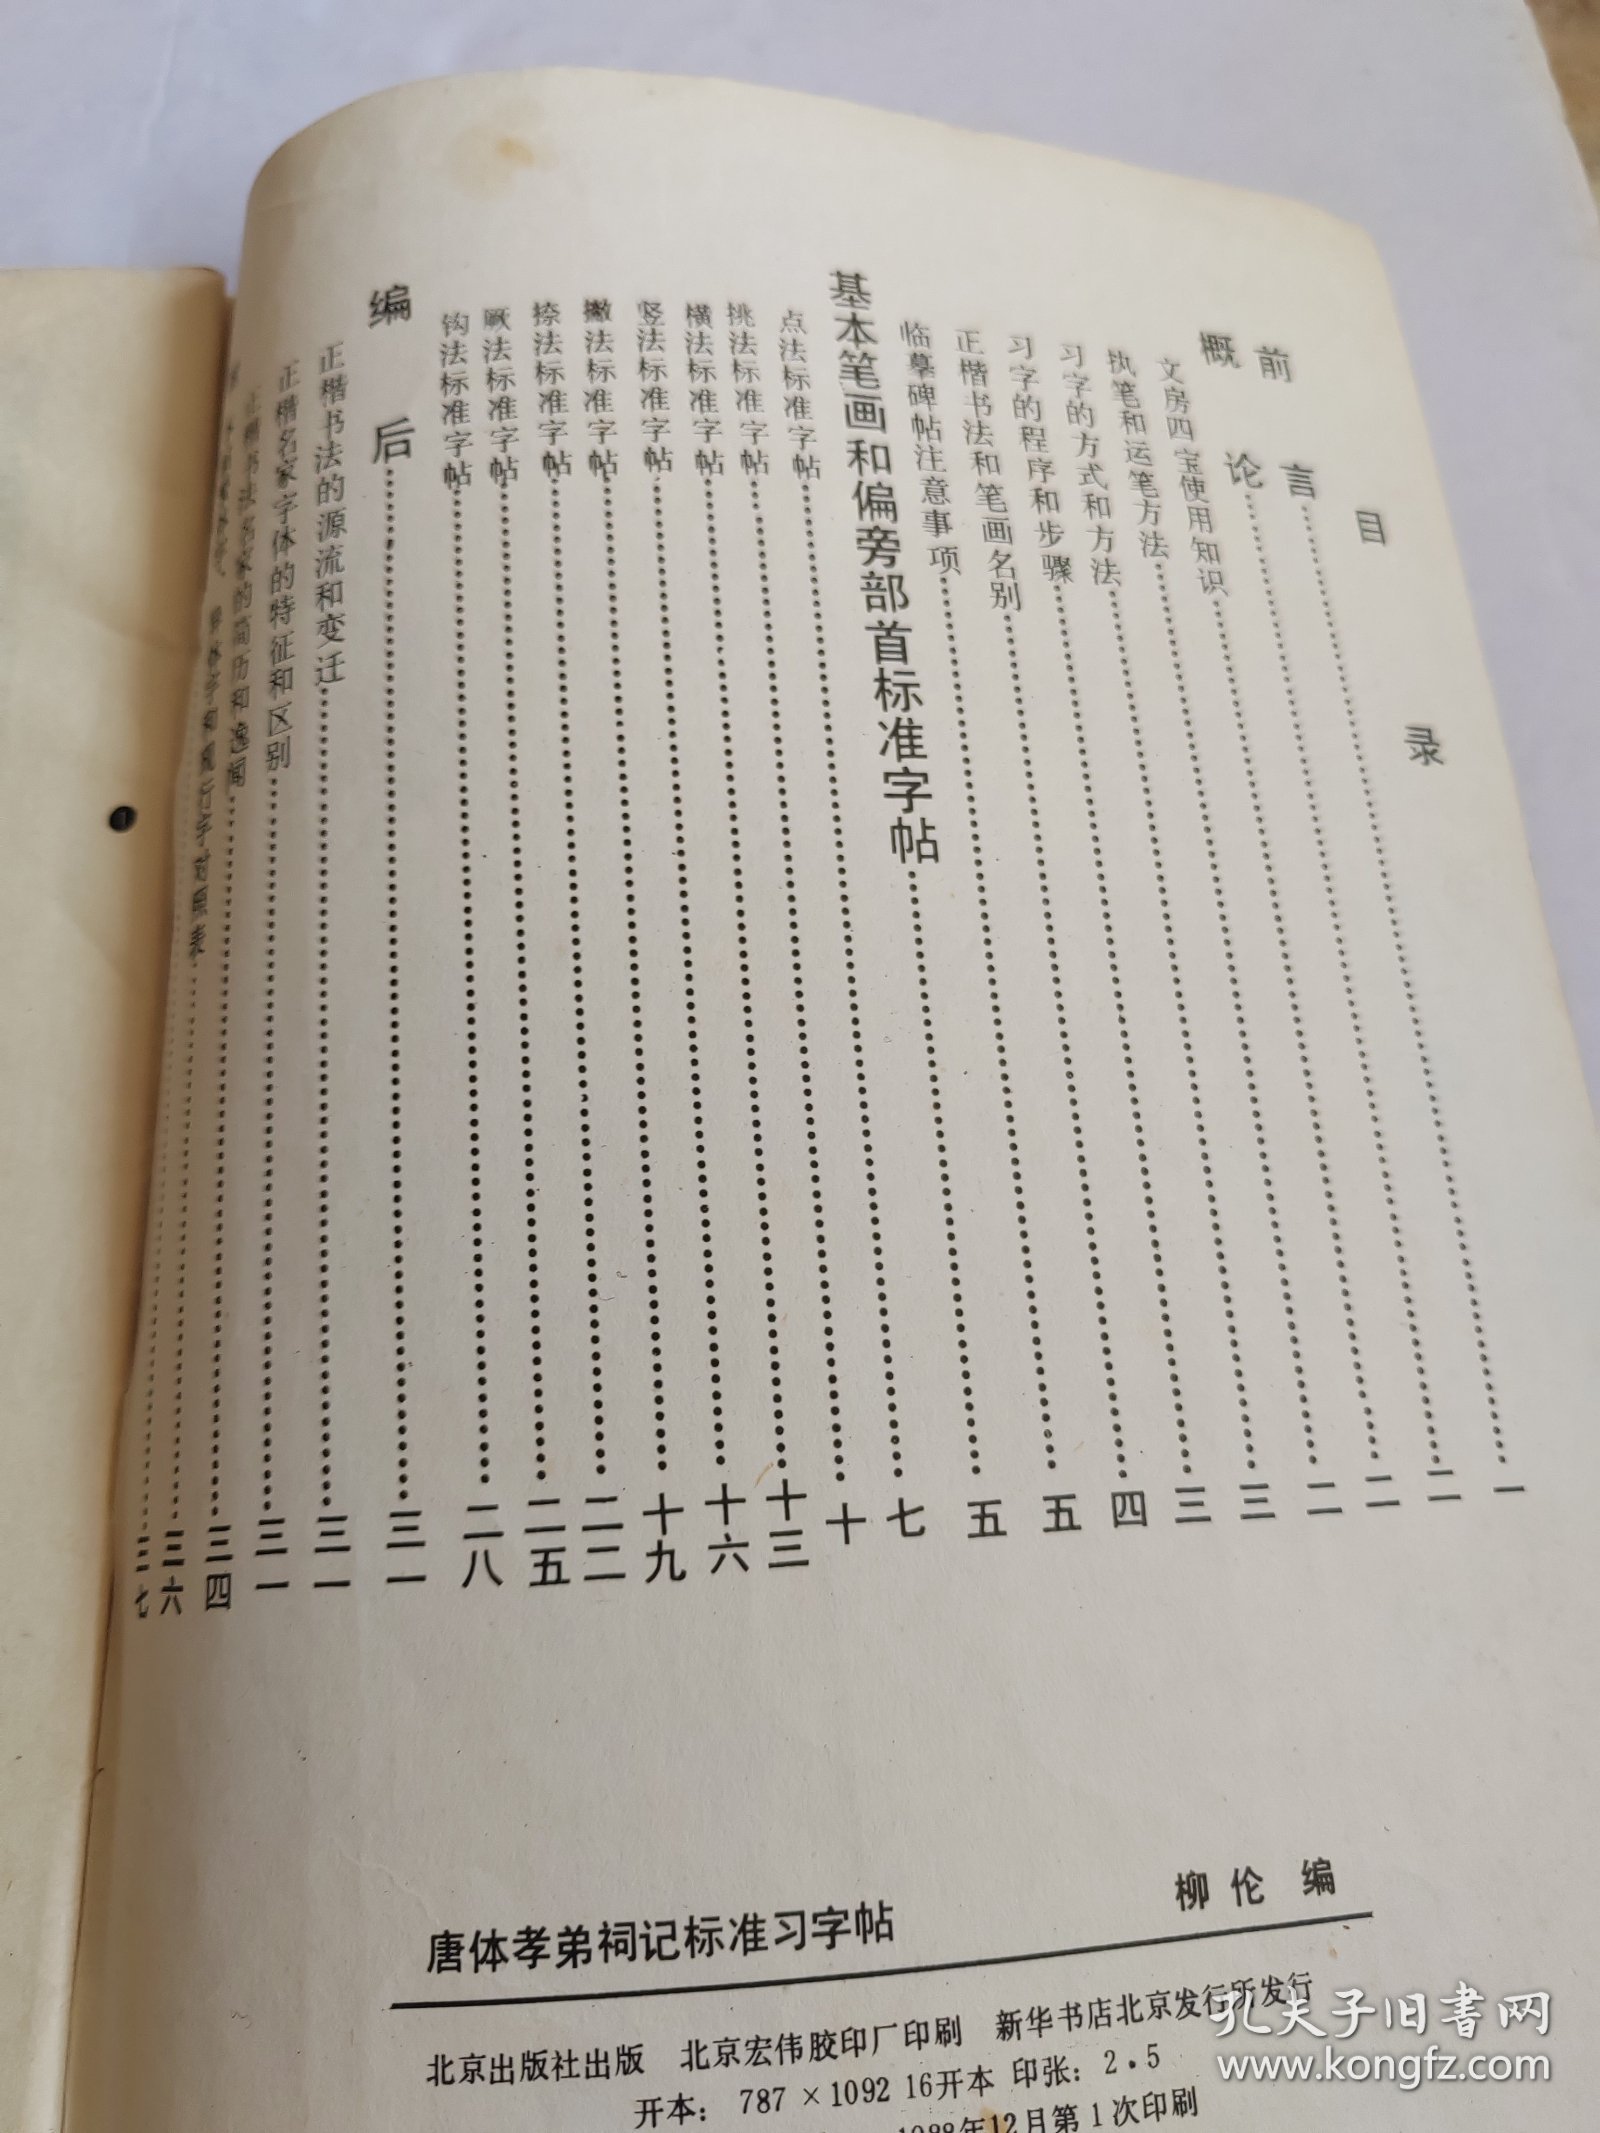 目录
前言……一
概论……二
文房四宝使用知识……二
执笔和运笔方法……二
习字的方式和方法……三
习字的程序和步骤……三
正楷书法和笔画名别……四
临摹碑帖注意事项……五
基本笔画和偏旁部首标准字帖……五
点法标准字帖……七
挑法标准字帖……十
横法标准字帖……十三
竖法标准字帖……十六
撇法标准字帖……十九
捺法标准字帖……二二
法标准字帖……二五
钩法标准字帖……二八
编后……三一
正楷书法的源流和变迁……三一
正楷名家字体的特征和区别……三一
正楷书法名家的简历和逸闻……三四
……三六
字对照表……三七
柳伦 编
唐体孝弟祠记标准习字帖
北京出版社出版 北京宏伟胶印厂印刷 新华书店北京发行所发行
开本：787×1092 16开本 印张：2.5
1988年12月第1次印刷
孔夫子旧书网
www.kongfz.com